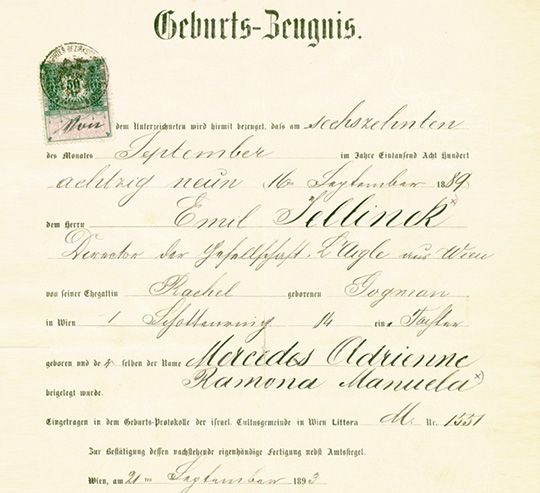 Geburts-Zeugnis.
50
Von dem Unterzeichneten wird hiemit bezeuget, dass am sechszehnten
des Monates September im Jahre Eintausend Acht Hundert
achtzig neun 16 September 1889
dem Herrn Emil Jellinek x)
Director der Gesellschaft L'Aigle aus Wien
von seiner Ehegattin Rachel geborenen Gogman
in Wien 1 Schottenring 14 eine Tochter
geboren und derselben der Name Mercedes Adrienne
Ramona Manuela x)
beigelegt wurde.
Eingetragen in dem Geburts-Protokolle der israel. Cultusgemeinde in Wien Littera M. Nr. 1551
Zur Bestätigung dessen nachstehende eigenhändige Fertigung nebst Amtssiegel.
Wien, am 21ten September 1893